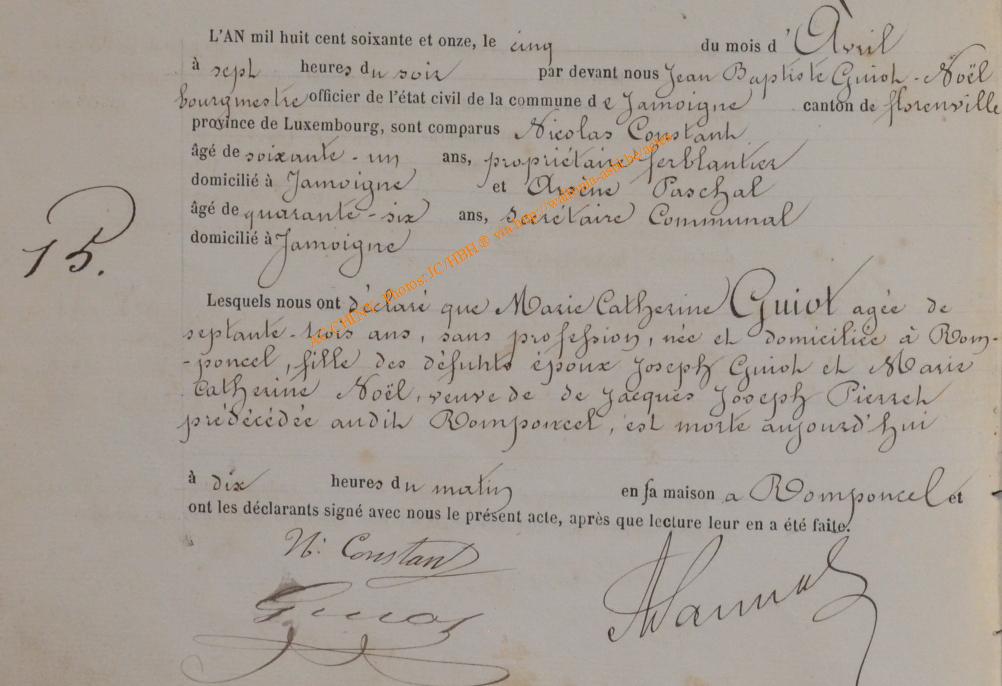 L'AN mil huit cent soixante et onze, le cinq du mois d'Avril
à sept heures du soir par devant nous Jean Baptiste Guiot-Noël
bourgmestre officier de l'état civil de la commune de Jamoigne canton de florenville
province de Luxembourg, sont comparus Nicolas Constant
âgé de soixante-un ans, propriétaire ferblantier
domicilié à Jamoigne et Arsène Paschal
âgé de quarante-six ans, secrétaire Communal
domicilié à Jamoigne
15.
Lesquels nous ont déclaré que Marie Catherine Guiot agée de
septante-trois ans, sans profession, née et domiciliée à Rom-
-poncel, fille des défunts époux Joseph Guiot et Marie
Catherine Noël, veuve de de Jacques Joseph Pierret
prédécédée audit Romponcel, est morte aujourd'hui
à dix heures du matin en sa maison a Romponcel et
ont les déclarants signé avec nous le présent acte, après que lecture leur en a été faite.
N. Constant
Guiot